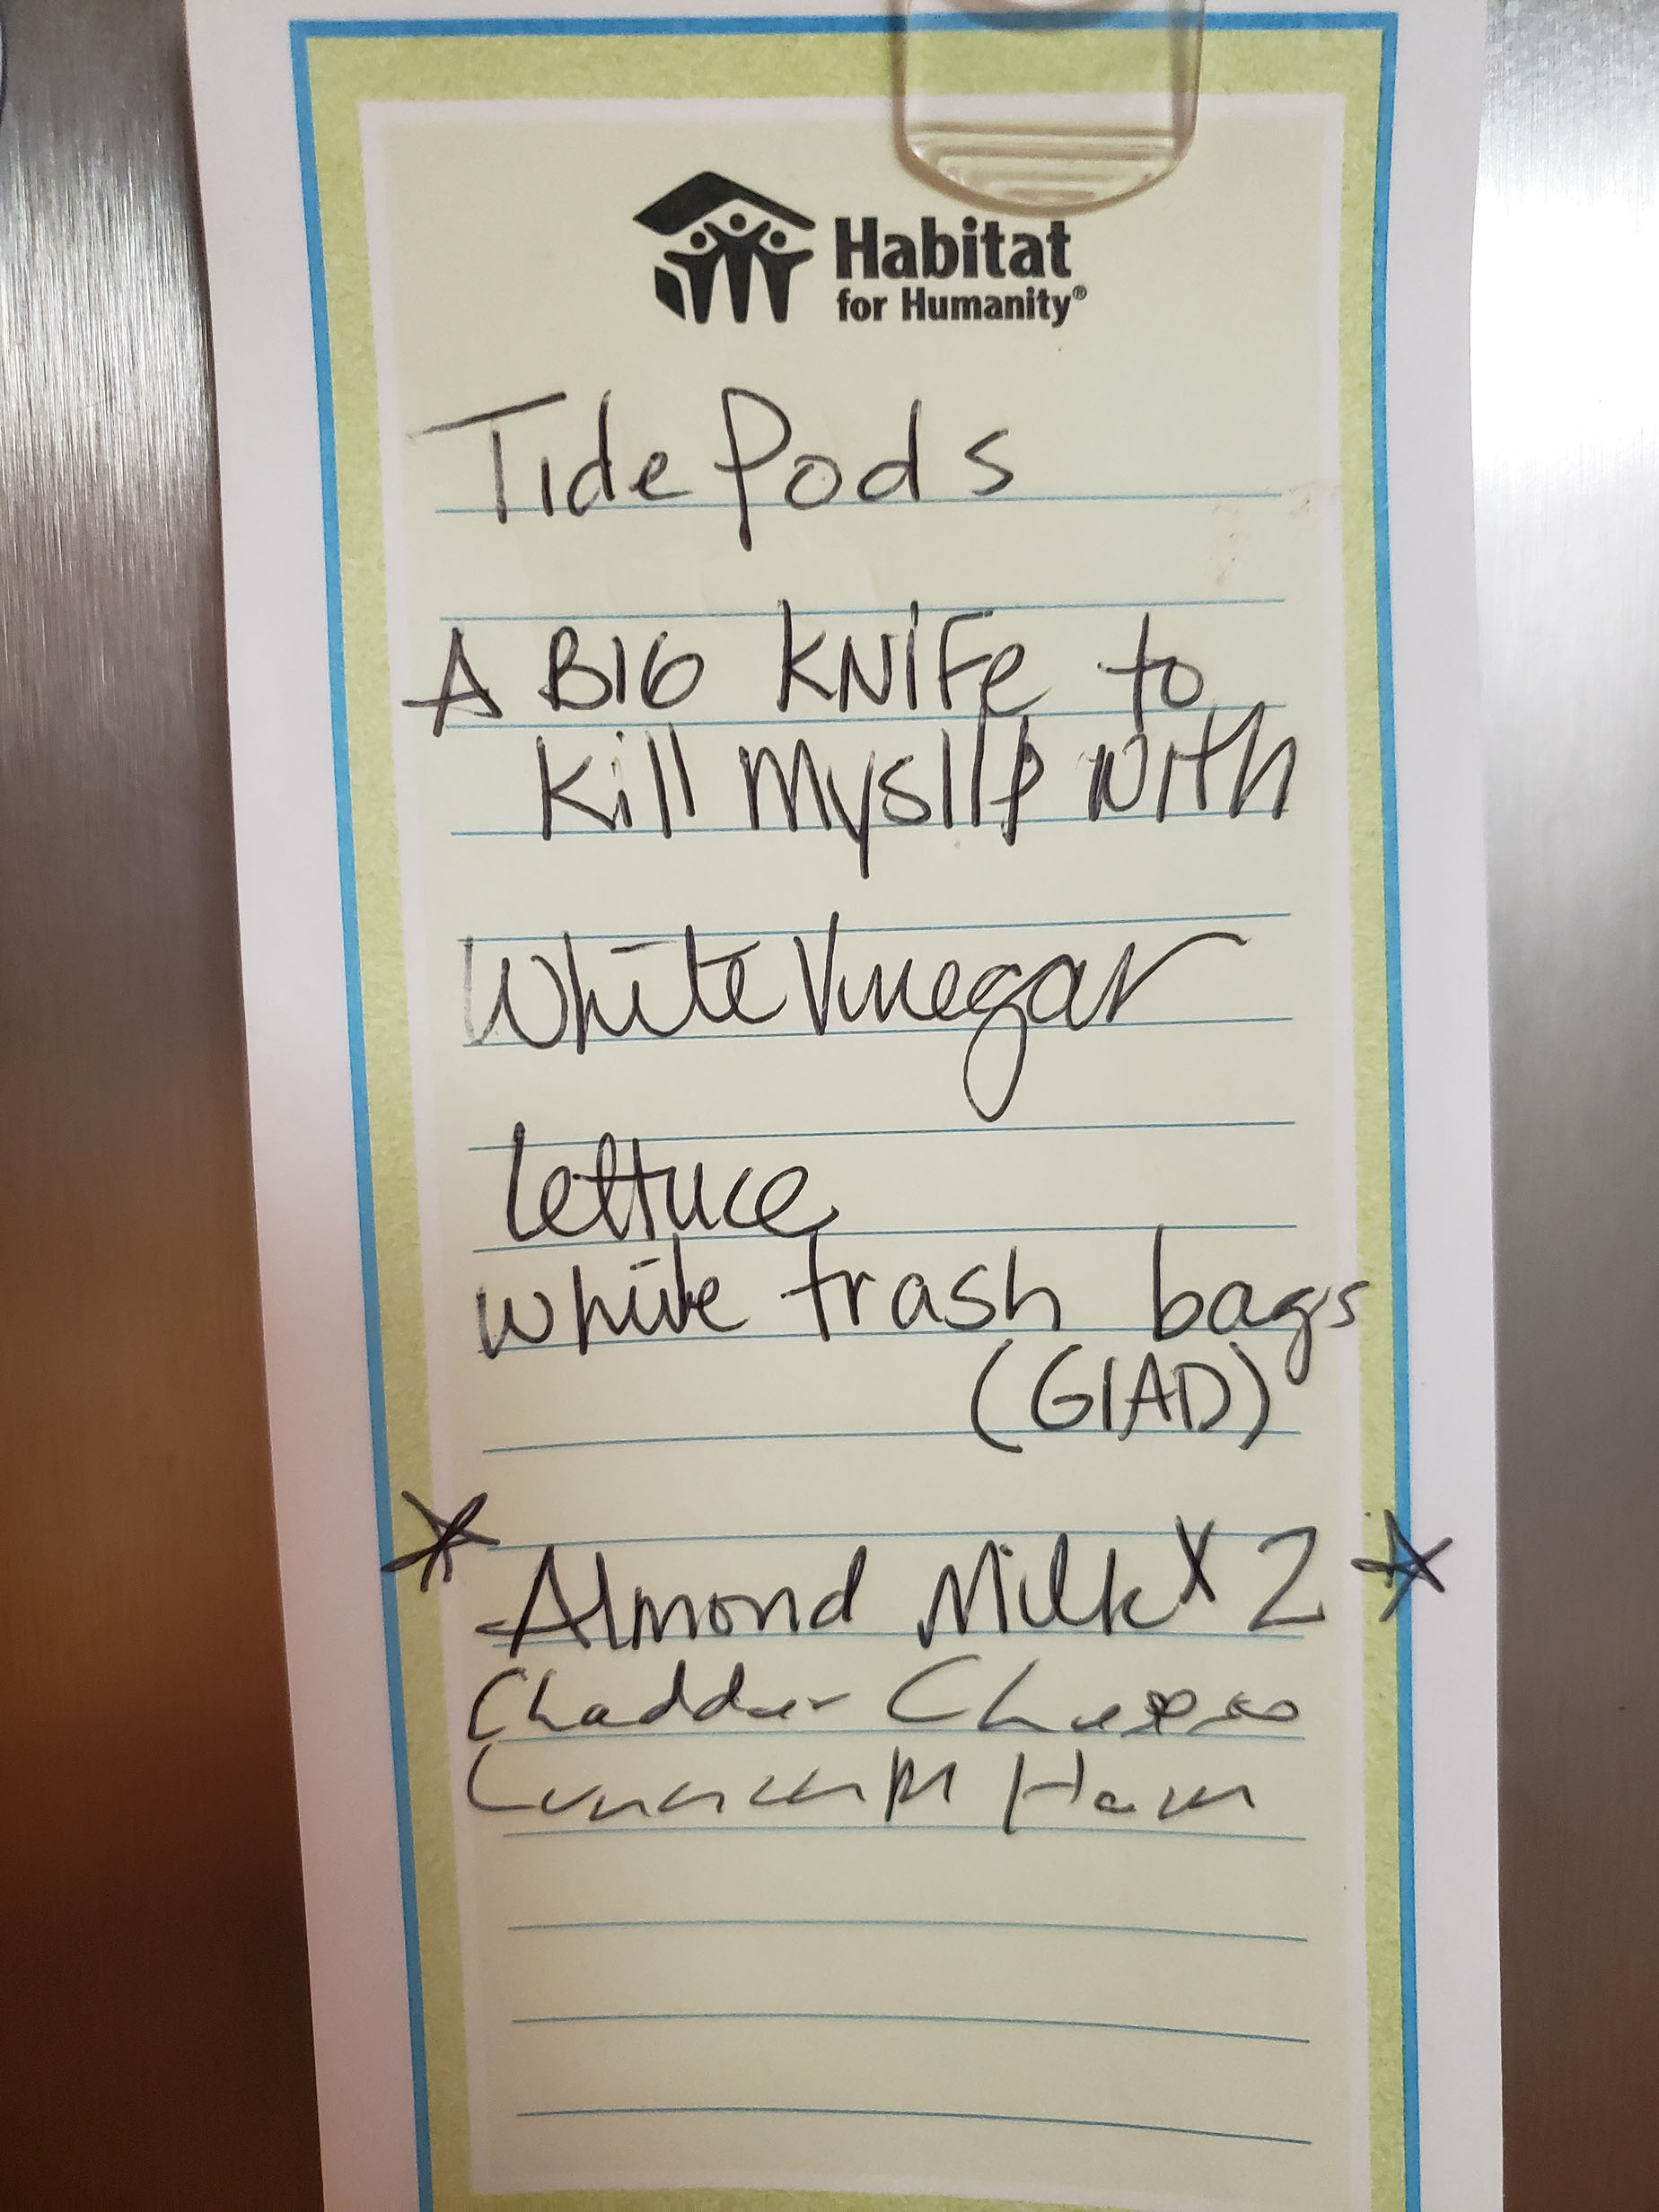 Habitat
for Humanity®
Tide Pods
A BIG KNIFe to
Kill Mysllf with
White Vinegar
Lettuce
white trash bags
(GlAD)
* Almond Milk x 2 *
Chaddar Cheese
Ham